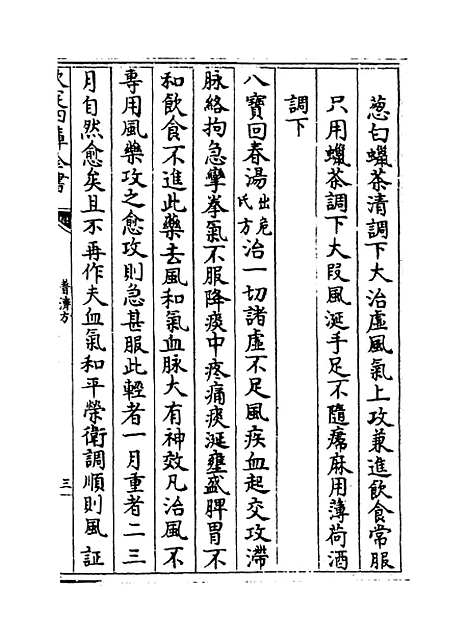 葱白蠟茶清調下大治虛風氣上攻兼進飲食常服
只用蠟茶調下大段風涎手足不隨痛麻用薄荷酒
調下
八寶回春湯出危氏方治一切諸虛不足風疾血起交攻滯
脉絡拘急攣拳氣不服降痰中疼痛痰涎壅盛脾胃不
和飲食不進此藥去風和氣血脉大有神效凡治風不
專用風藥攻之愈攻則急甚服此輕者一月重者二三
月自然愈矣且不再作夫血氣和平榮衛調順則風証
欽定四庫全書
普濟方
三一